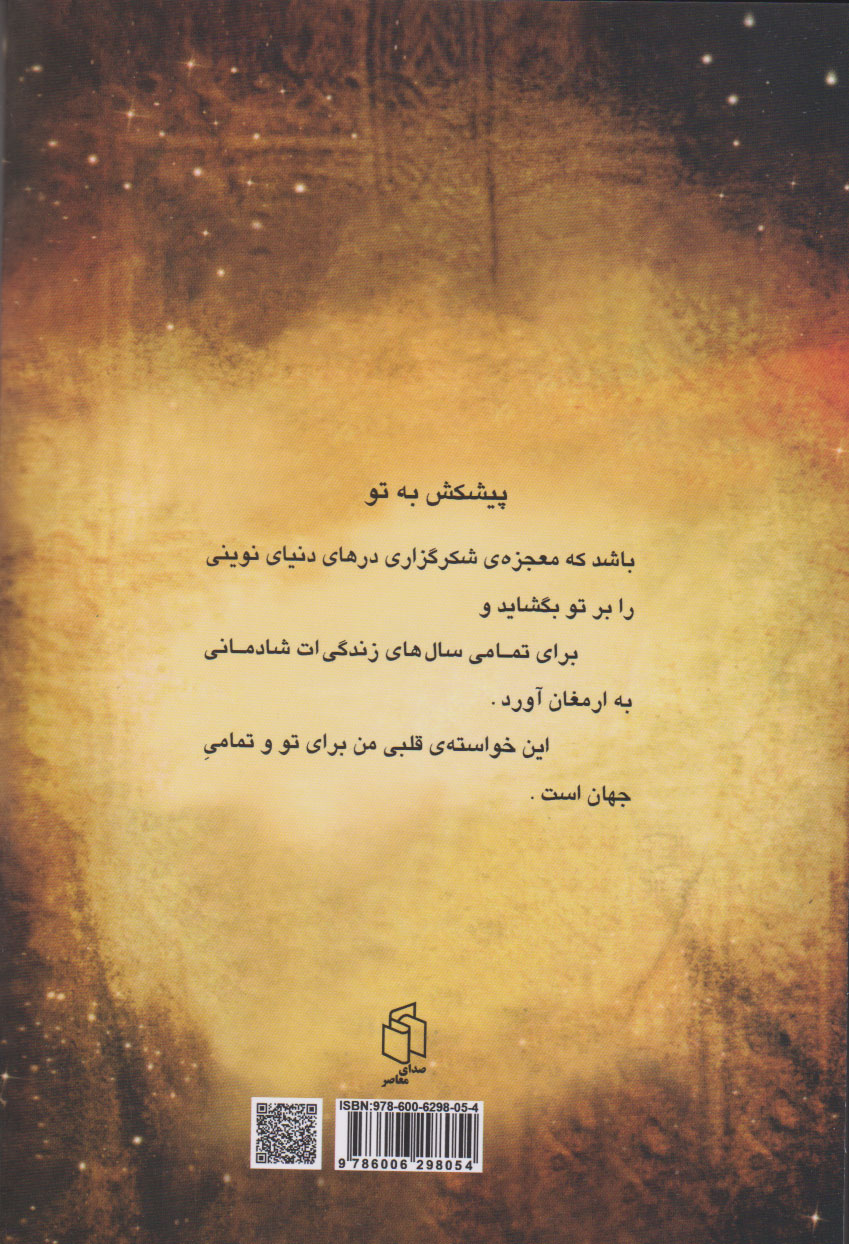 پیشکش به تو
باشد که معجزه‌ی شکرگزاری درهای دنیای نوینی
را بر تو بگشاید و
برای تمامی سال‌های زندگی‌ات شادمانی
به ارمغان آورد .
این خواسته‌ی قلبی من برای تو و تمامیِ
جهان است .
صدای
معاصر
ISBN:978-600-6298-05-4
9 786006 298054